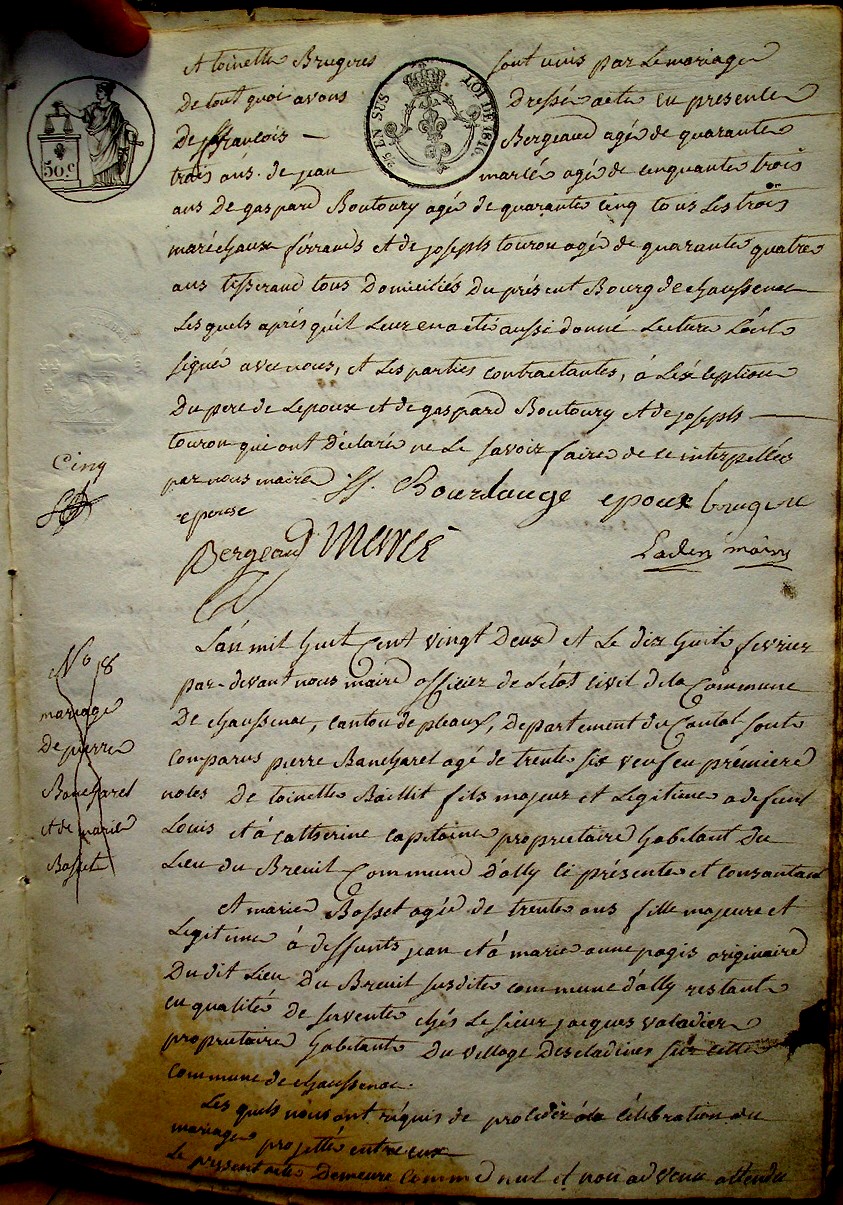 Atoinette Brugeres sont unis par Le mariage
De tout quoi avons Dressé acte en presente
De françois — Bergeaud agé de quarante
trois ans. de jean marcé agé de cinquante trois
ans De gaspard Boutoury agé de quarante cinq tous Les trois
maréchaux ferrands et de joseph touron agé de quarante quatre
ans tisserand tous Domiciliés Du présent Bourg de chaussenac
Lesquels aprés qu'il Leur en a été aussi donné Lecture L'ont
signé avec nous, et Les parties contractantes, à L'éxception
Du pere de L'epoux et de gaspard Boutoury et de joseph —
touron qui ont déclaré ne Le savoir faire de ce interpellés
par nous maire J. Bourdauge epoux brugere
epouse
Bergeaud Marcé
Laden maire
50c
25 EN SUS LOI DE 1816.
Cinq
L'an mil huit Cent vingt Deux et Le dix huit fevrier
par-devant nous maire officier de L'état civil de la Commune
De chaussenac, canton de pleaux, Departement du Cantal sont
comparus pierre Bancharel agé de trente six veuf en prémiere
noces De toinette Baillit fils majeur et Legitime a defunt
Louis et à catherine capitaine propriétaire habitant du
Lieu du Breuil Commune D'ally ci présente et consantant
Et marie Bosset agée de trente ans fille majeure et
Legitime à deffunts jean et à marie anne pagis originaire
Dudit Lieu Du Breuil susdite commune d'ally restante
en qualité De servente chés Le sieur jacques valadier
propriétaire habitant Du village Descladines sur cette
commune de chaussenac.
Les quels nous ont réquis de proceder à la célébration du
mariage projetté entre eux
Le present acte Demeure comme nul et non advenu attendu
No 8
mariage
De pierre
Bancharel
et de marie
Bosset